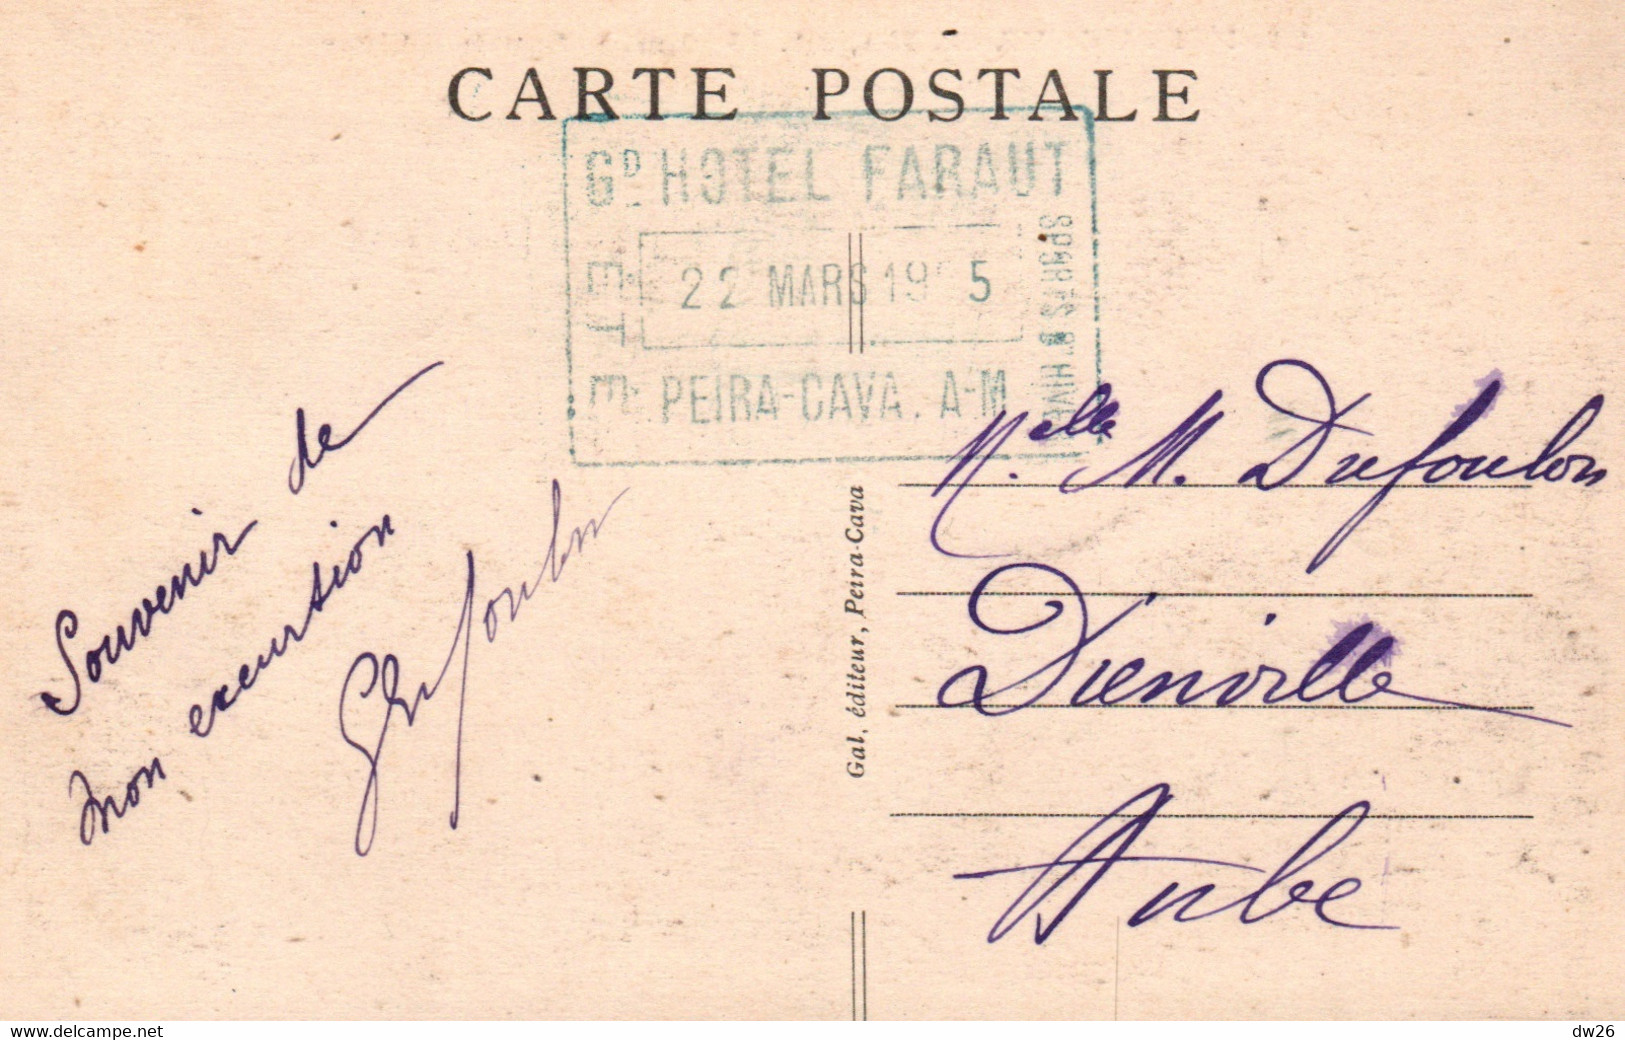 CARTE POSTALE
GD HOTEL FARAUT
ÉTÉ
22 MARS 19 5
SPORTS D'HIVER
PEIRA-CAVA. A-M
Souvenir de
mon excursion
Dufoulon
Gal, éditeur, Peira-Cava
Melle M. Dufoulon
Dienville
Aube
www.delcampe.net
dw26